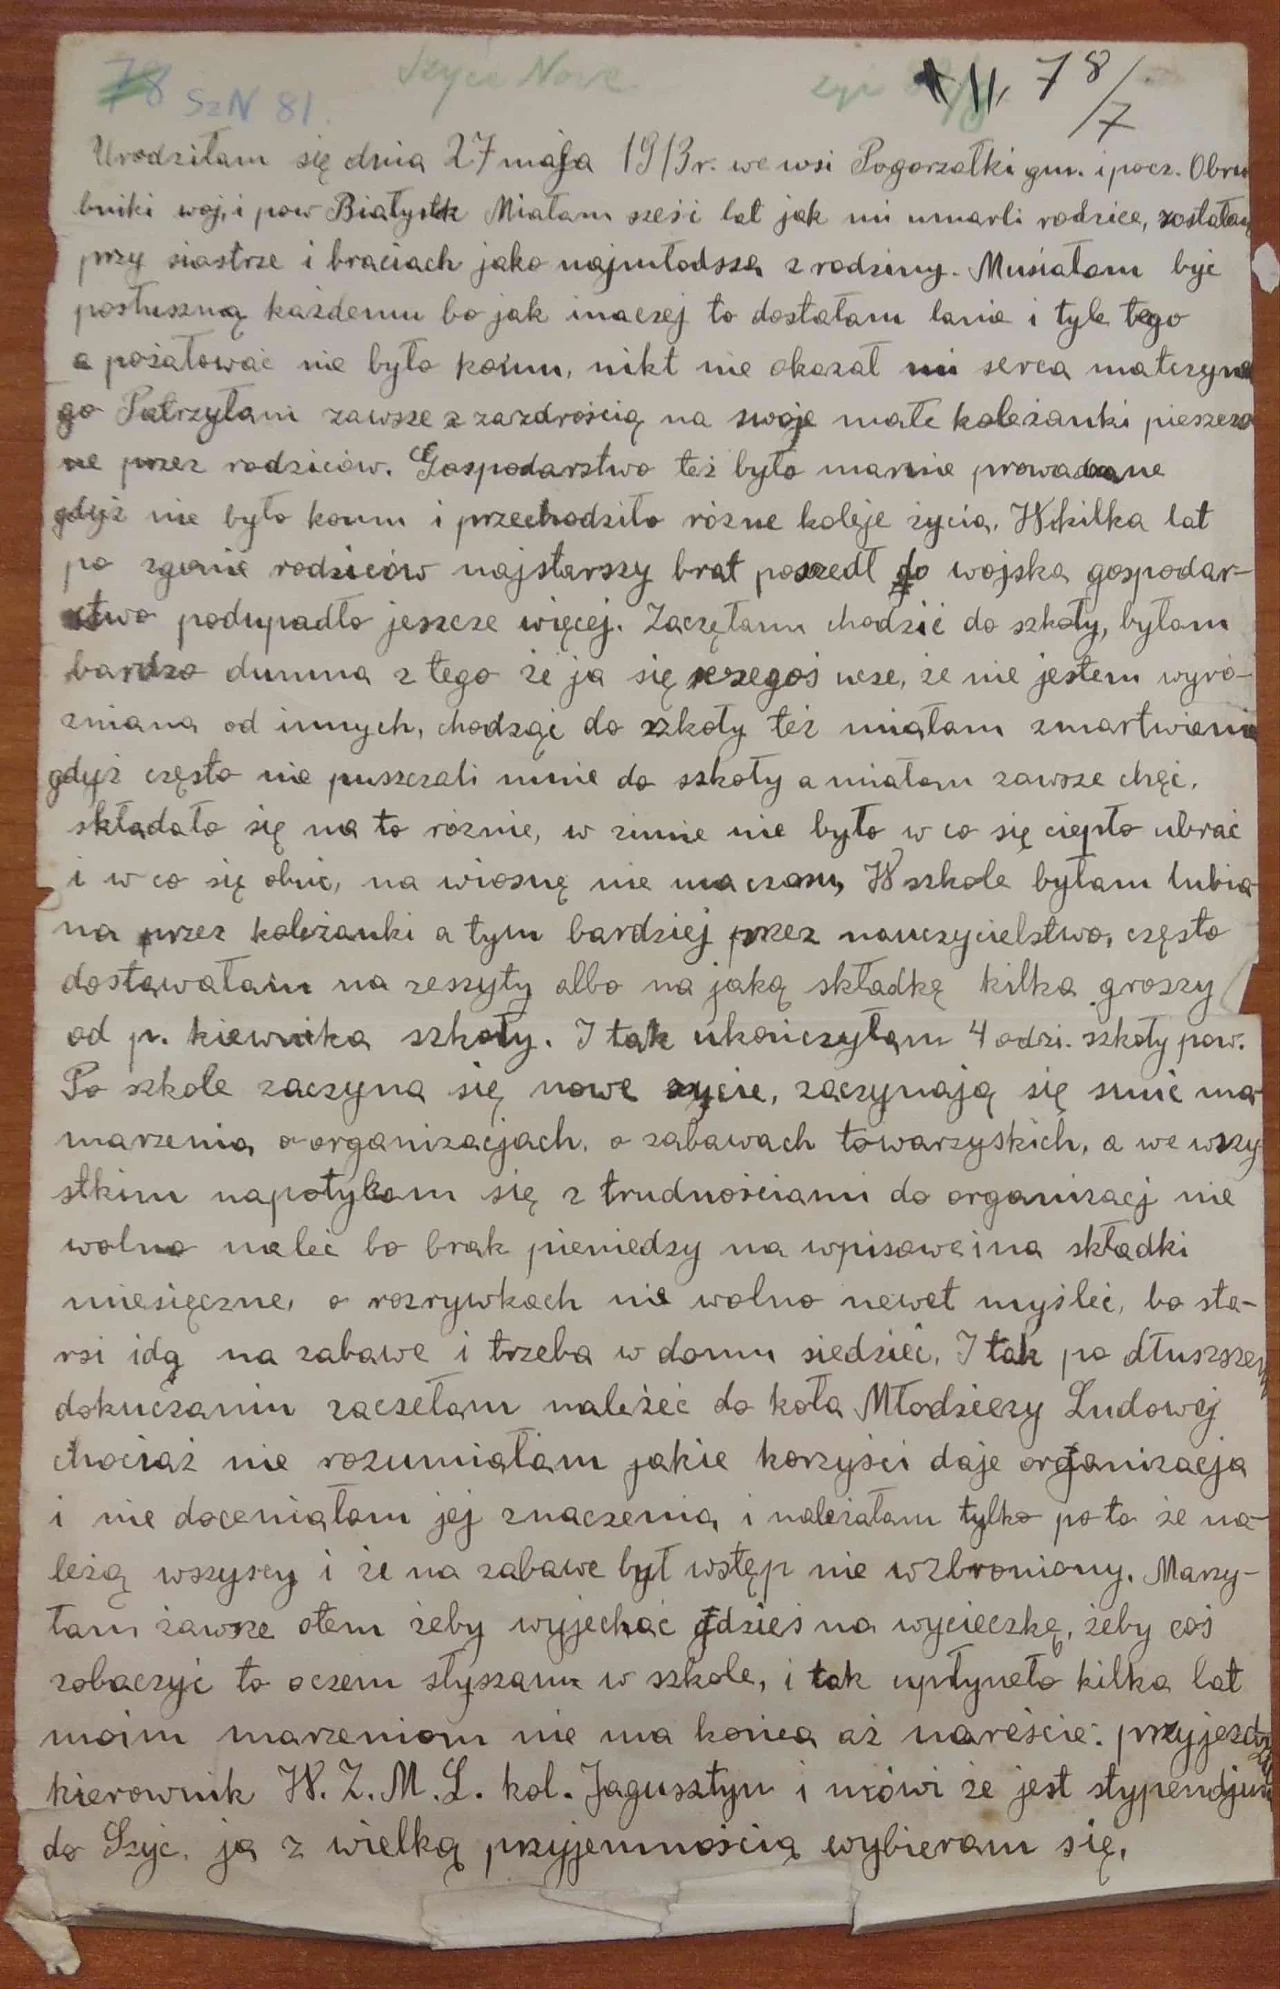 78 SzN 81. Szyce Nowe XII, 78/7
Urodziłam się dnia 27 maja 1913 r. we wsi Pogorzałki gm. i pocz. Obru
bniki woj. i pow Białystk Miałam sześć lat jak mi umarli rodzice, zostałam
przy siastrze i braciach jako najmłodsza z rodziny. Musiałam być
posłuszną każdemu bo jak inaczej to dostałam lanie i tyle tego
a pożałować nie było komu, nikt nie okazał mi serca matczyne
go Patrzyłam zawsze z zazdrością na swoje małe koleżanki pieszczo
ne przez rodziców. Gospodarstwo też było marnie prowadzone
gdyż nie było komu i przechodziło różne koleje życia. W kilka lat
po zgonie rodziców najstarszy brat poszedł do wojska gospodar-
stwo podupadło jeszcze więcej. Zaczęłam chodzić do szkoły, byłam
bardzo dumna z tego że ja się czegoś ucze, że nie jestem wyró-
zniana od innych, chodząc do szkoły też miałam zmartwienie
gdyż często nie puszczali mnie do szkoły a miałam zawsze chęć,
składało się na to różnie, w zimie nie było w co się ciepło ubrać
i w co się obuć, na wiosnę nie ma czasu, W szkole byłam lubia-
na przez koleżanki a tym bardziej przez nauczycielstwo, często
dostawałam na zeszyty albo na jaką składkę kilka groszy
od p. kiewnika szkoły. I tak ukończyłam 4 odzi. szkoły pow.
Po szkole zaczyna się nowe życie, zaczynają się snuć ma-
marzenia o organizacjach, o zabawach towarzyskich, a we wszy
stkim napotykam się z trudnościami do organizacj nie
wolno należć bo brak pieniedzy na wpisowe i na składki
miesięczne, o rozrywkach nie wolno nawet myśleć, bo sta-
rsi idą na zabawe i trzeba w domu siedzieć. I tak po dłuszszem
dokuczaniu zaczełam należeć do koła Młodzieży Ludowej
chociaż nie rozumiałam jakie korzyści daje organizacja
i nie doceniałam jej znaczenia i należałam tylko po to że na-
leżą wszyscy i że na zabawe był wstęp nie wzbroniony. Marzy-
łam zawsze otem żeby wyjechać gdzieś na wycieczkę, żeby coś
zobaczyć to oczem słyszam w szkole, i tak upłyneło kilka lat
moim marzeniom nie ma końca aż nareście: przyjeżdża
kierownik W. Z. M. L. kol. Jagusztyn i mówi że jest stypendjum
do Szyc, ja z wielką przyjemnością wybieram się.